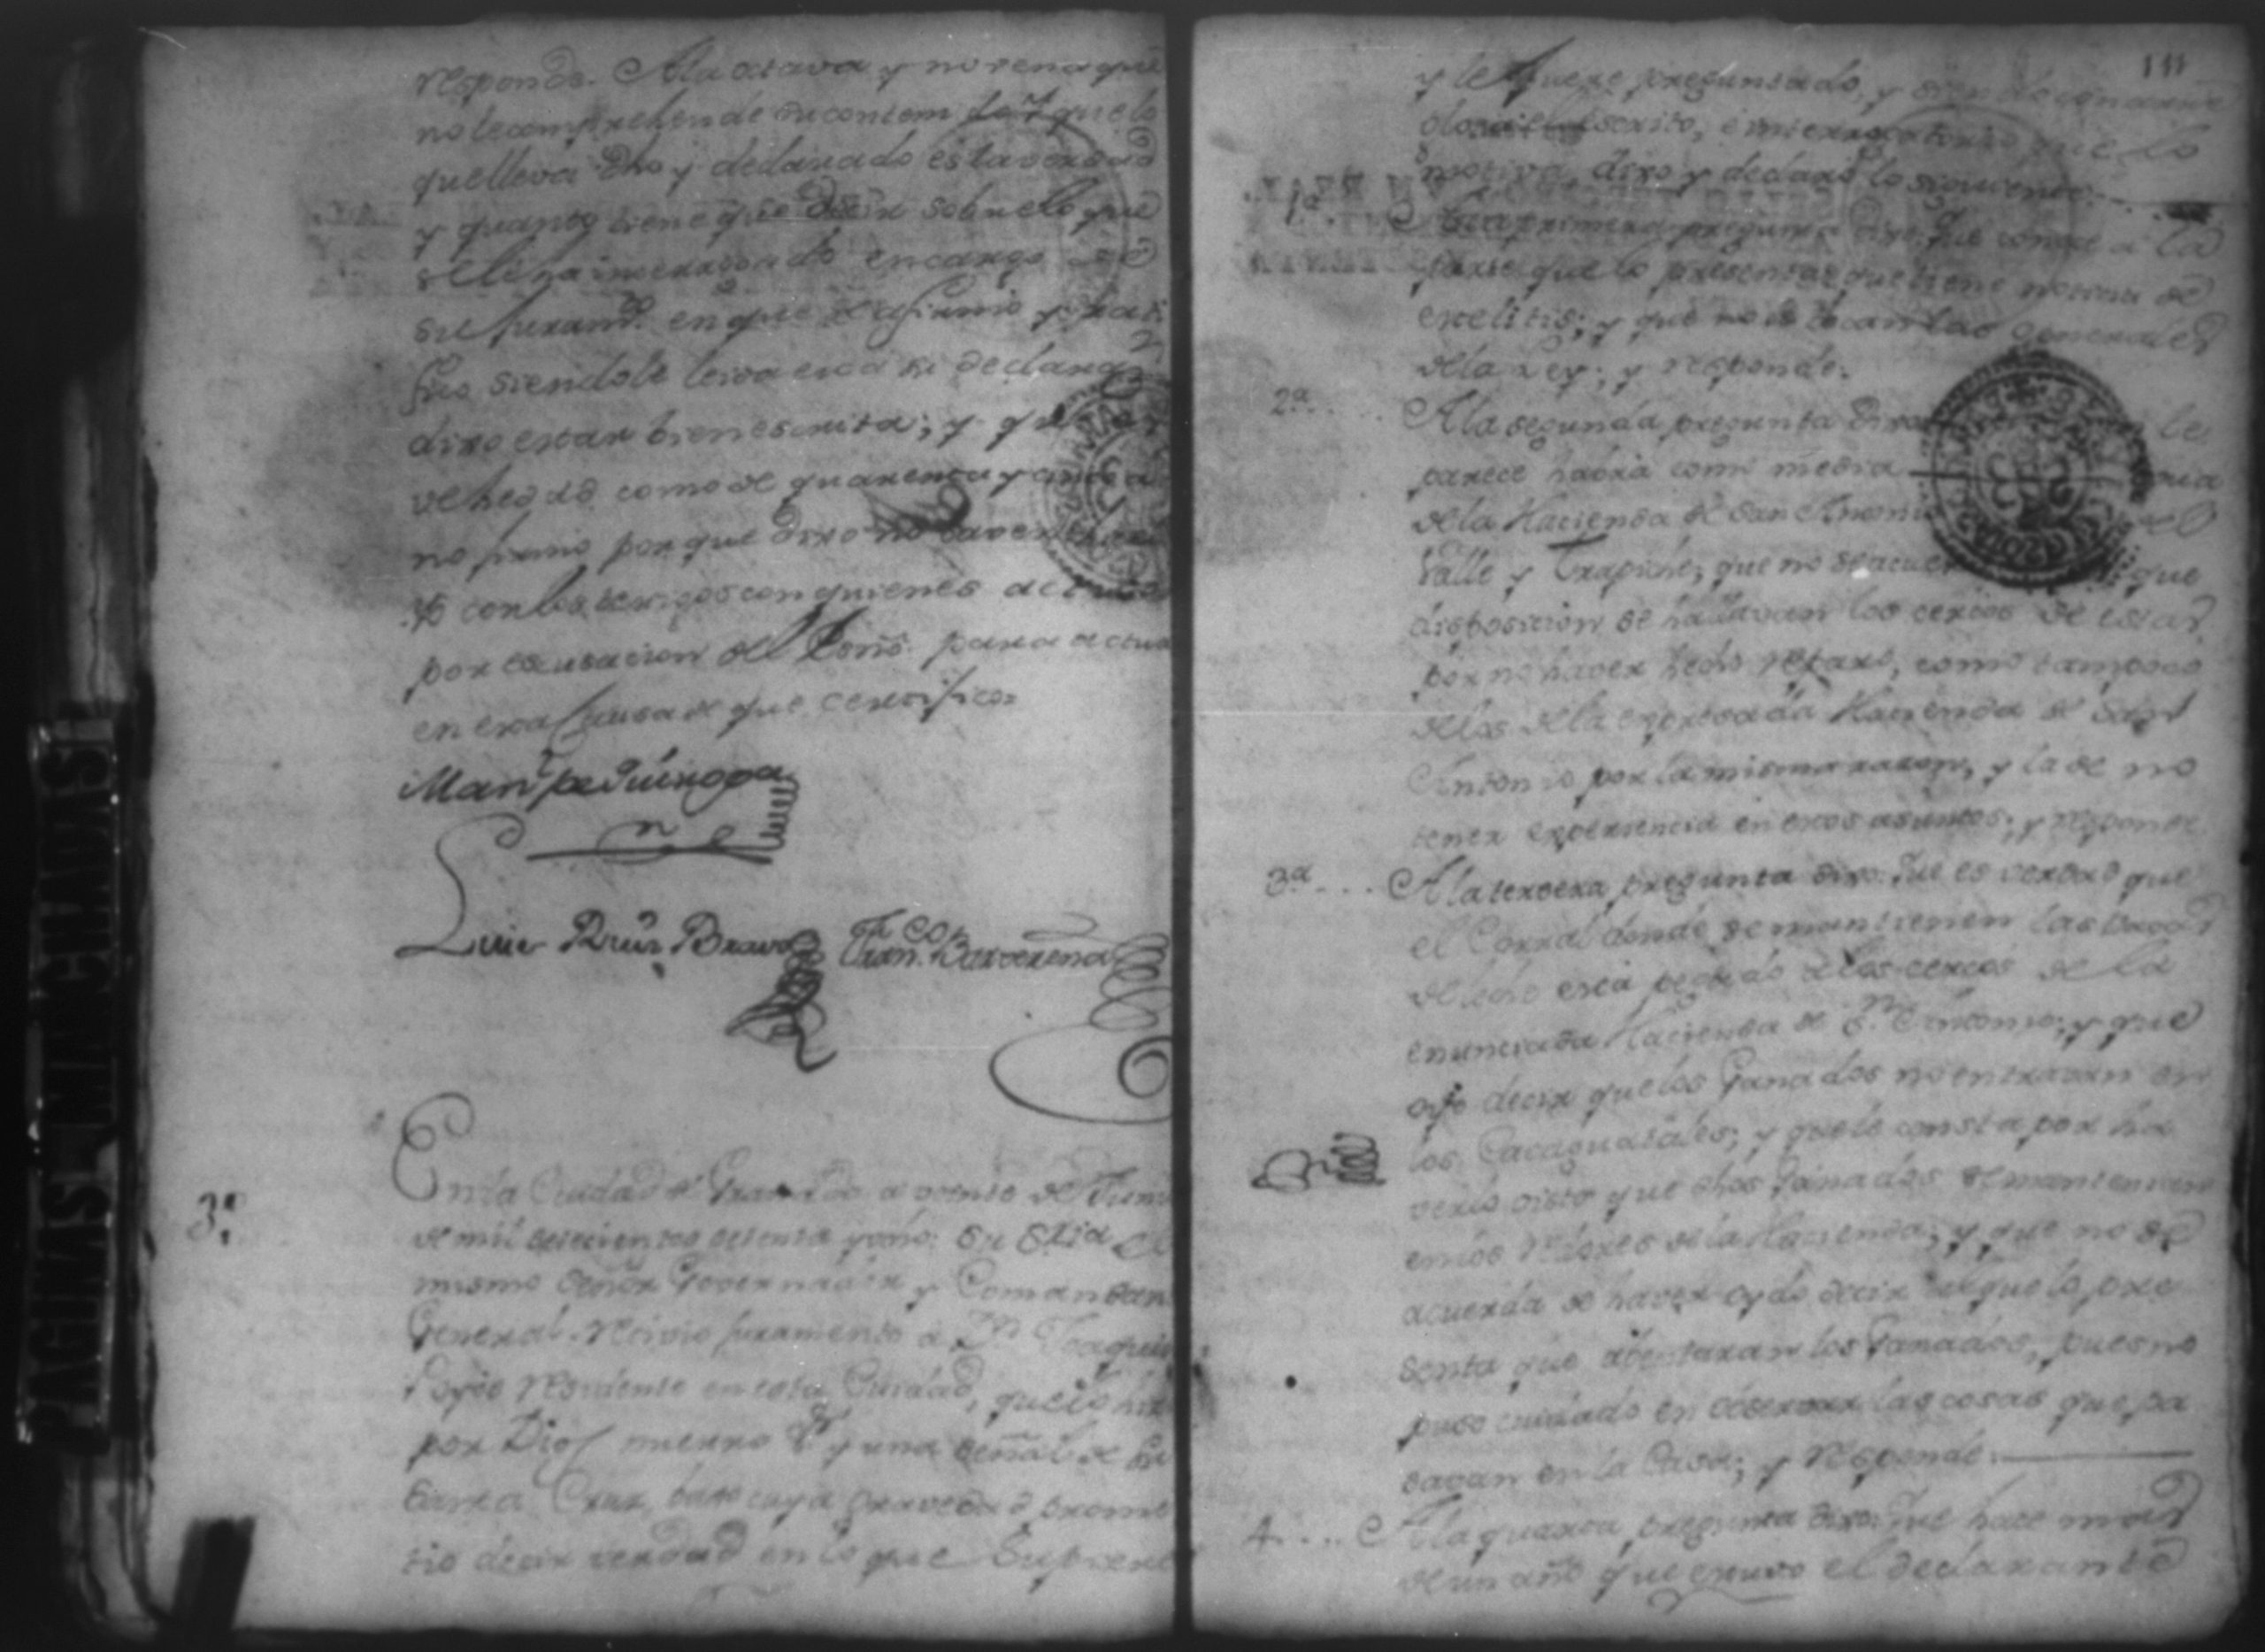 responde. A la octava y novena que
no le comprehende su contem. do y que lo
que lleva dho y declarado es la verdad
y quanto tiene que decir sobre lo que
se le ha interrogado en cargo de
su juram.to en que se afirmó y rati
ficó siendole leida esta su declarac.n
dixo estar bien escrita; y que es
de hedad como de quarenta y cinco a
no firmó porque dixo no saver
Yo con los testigos con quienes actuo
por escusacion del Essno. para actua
en esta Causa de que certifico=
Man.l de Quiroga
Luis Ruiz Bravo Fran.co Barberena
3.o
En la Ciudad de Granada a veinte de Jun
de mil setecientos setenta y ocho: Su Sria el
mismo Señor Governador y Comandan
General. Recivio juramento a D.n Joaquin
residente en esta Ciudad, que lo hizo
por Dios nuestro S.r y una señal de la
Santa Cruz, bajo cuya gravedad prome
tio decir verdad en lo que supiere
111
y le fuere preguntado, y siendolo con arreg
escrito, é interrogatorio que lo
motiva, dixo y declaró lo siguiente
1.a A la primera pregunta dixo: Que conoce a la
parte que lo presenta: que tiene noticia de
este litis; y que no le tocan las Generales
de la Ley; y responde.
2.a A la segunda pregunta dixo le
parece habrá como media
de la Hacienda de San Antonio
Valle y Trapiche; que no se acuer que
disposicion se hallavan los cercos de estas
por no haver hecho reparo, como tampoco
de los de la expresada Hacienda de San
Antonio por la misma razon, y la de no
tener experiencia en estos asuntos; y responde.
3.a A la tercera pregunta dixo: Que es verdad que
el Corral donde se mantienen las bacas
de leche está pegado a los cercos de la
enunciada Hacienda de S.n Antonio; y que
oyó decir que los Ganados no entravan en
los Cacaguatales; y que le consta por ha
verlo visto que dhos Ganados se mantenian
en los de la Hacienda; y que no se
acuerda de haver oydo decir al que lo pre
senta que los Ganados, pues no
puso cuidado en observar las cosas que pa
savan en la Casa; y responde.
4 A la quarta pregunta dixo: Que hace mas
de un año que estuvo el declarante